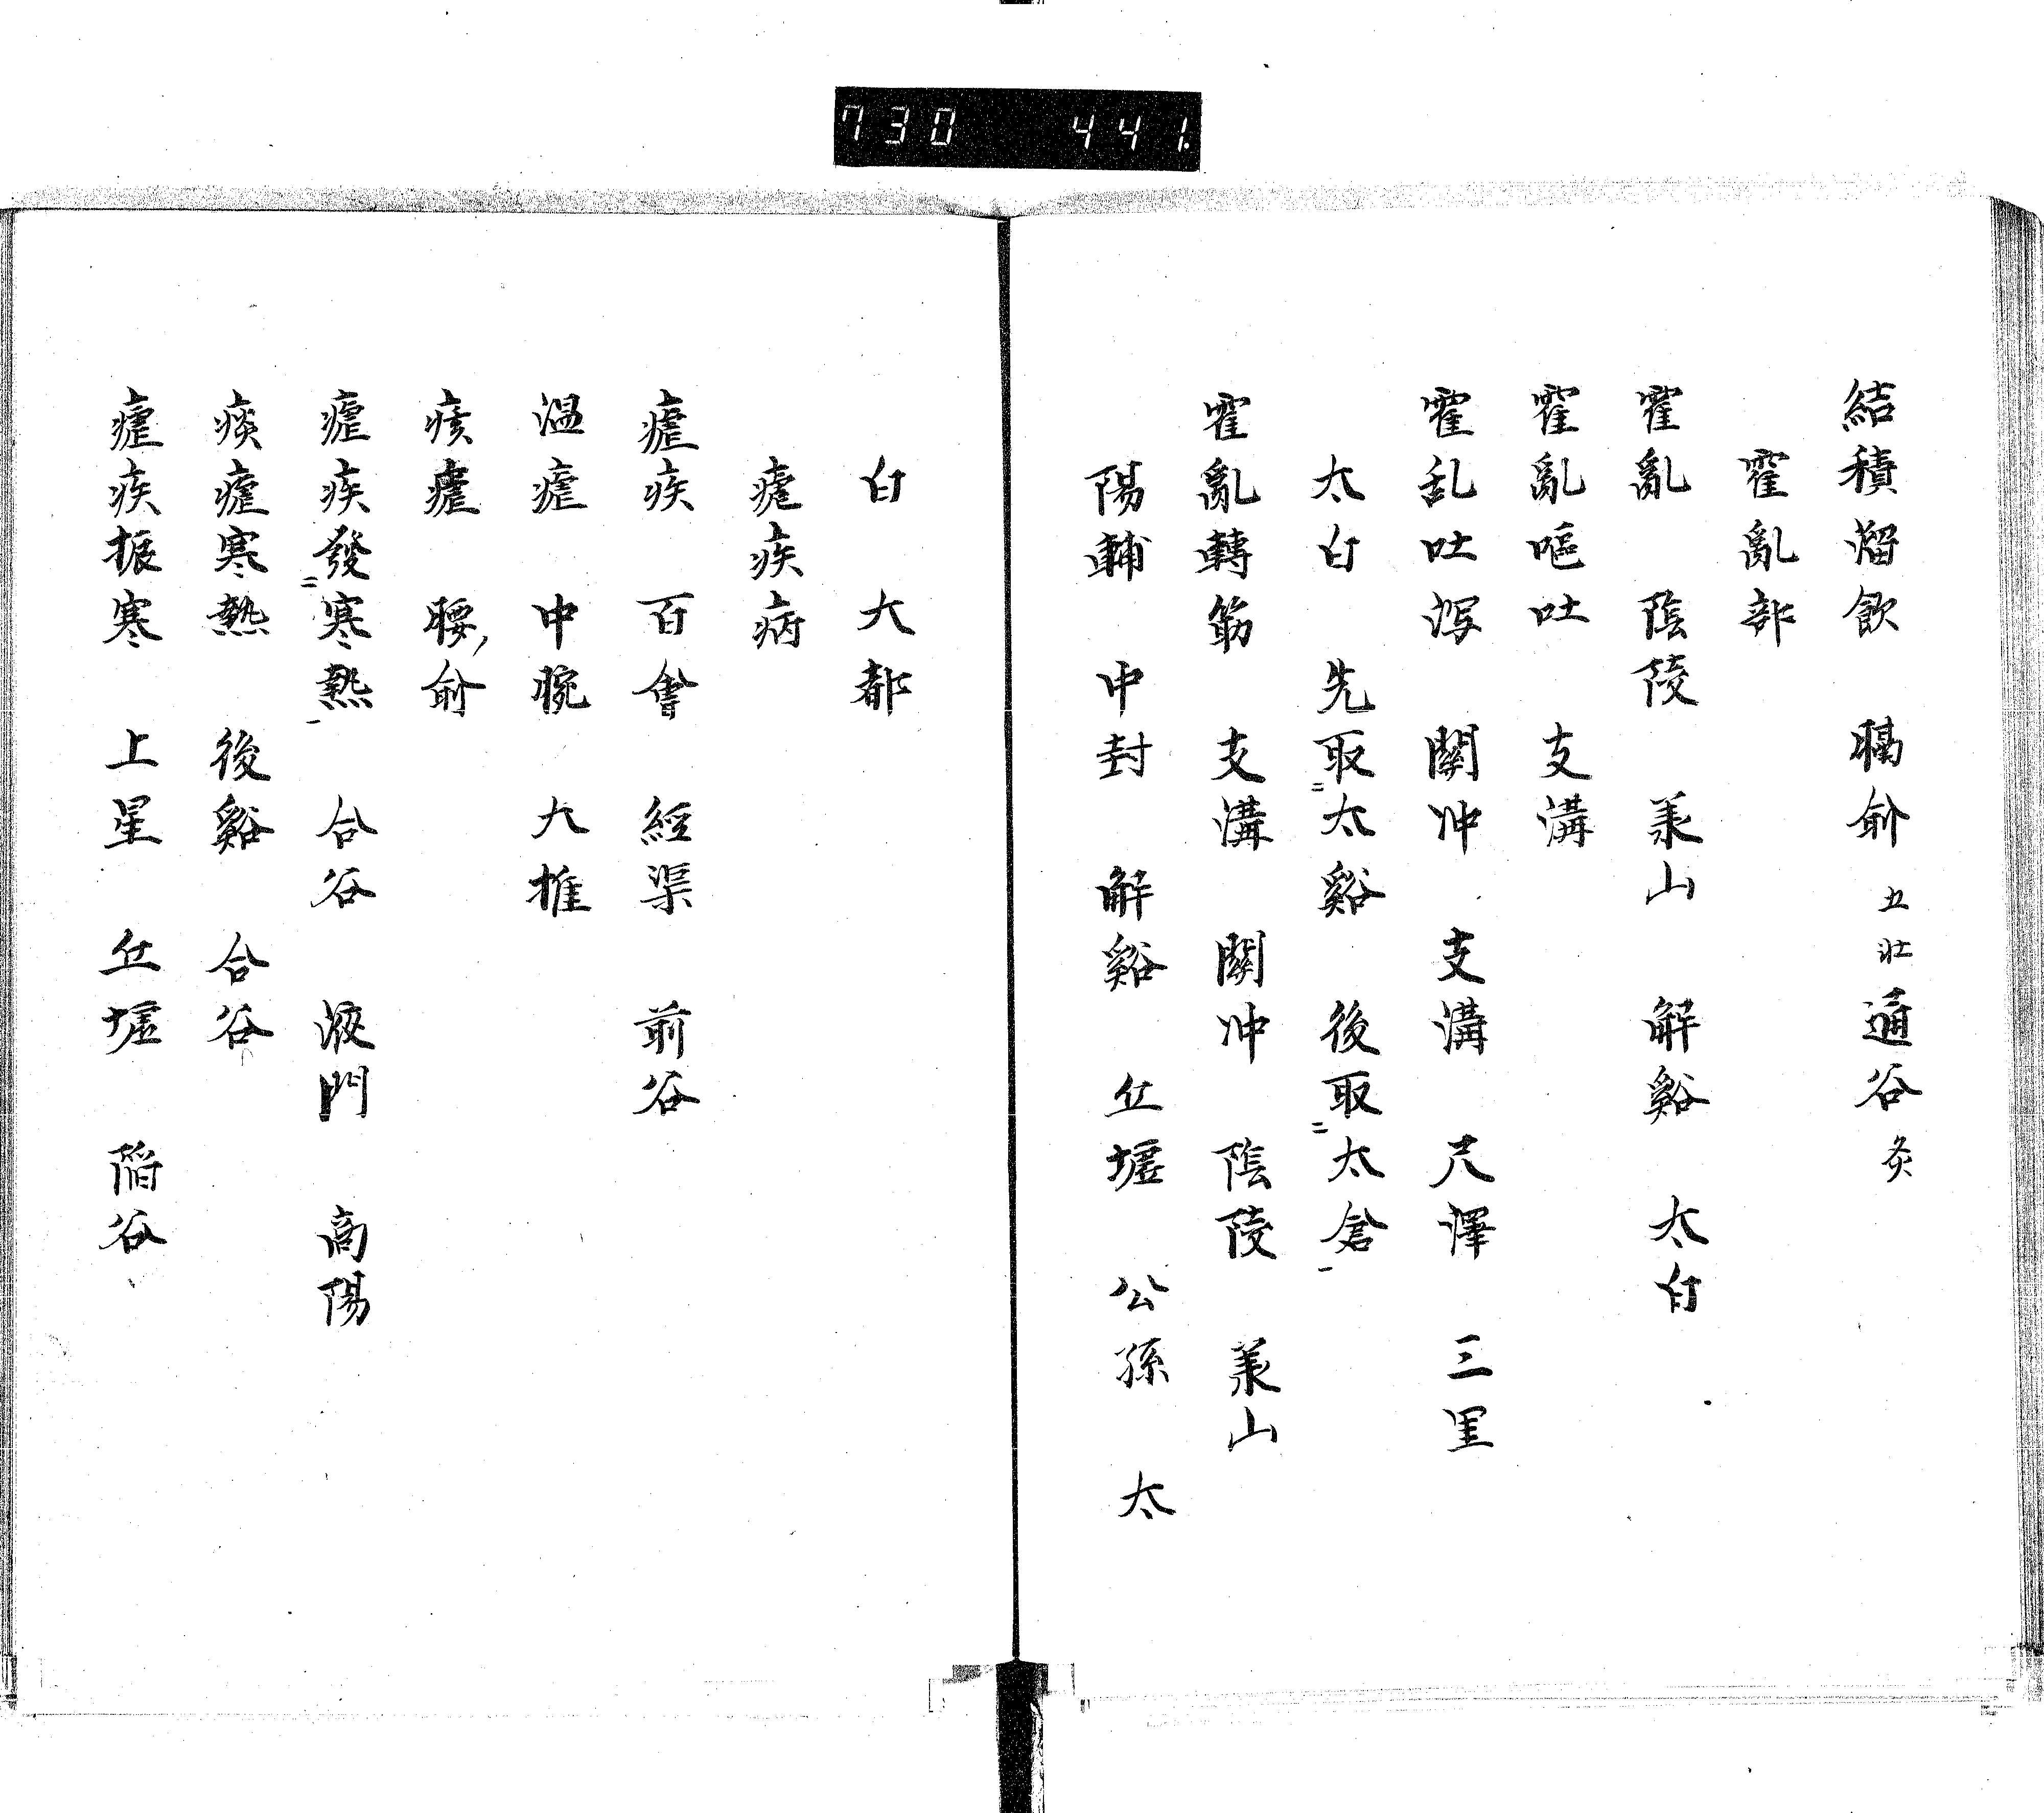 730 441.
結積溜飲 膈俞 五壯 通谷 灸
霍亂部
霍亂 陰陵 承山 解谿 太白
霍亂嘔吐 支溝
霍乱吐泻 關冲 支溝 尺澤 三里
太白 先取二太谿 後取二太倉一
霍亂轉筋 支溝 關冲 陰陵 承山
陽輔 中封 解谿 丘墟 公孫 太
白 大都
瘧疾病
瘧疾 百會 經渠 前谷
温瘧 中脘 大推
痎瘧 腰俞
瘧疾發二寒熱一 合谷 液門 商陽
痰瘧寒熱 後谿 合谷
瘧疾振寒 上星 丘墟 陷谷